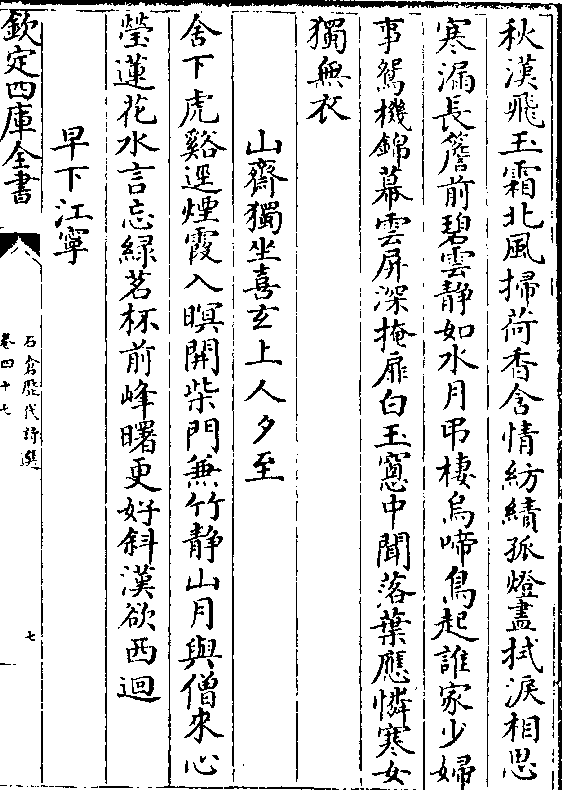 秋漢飛玉霜北風掃荷香含情紡績孤燈盡拭淚相思
寒漏長簷前碧雲靜如水月弔棲烏啼鳥起誰家少婦
事鴛機錦幕雲屏深掩扉白玉窻中聞落葉應憐寒女
獨無衣
山齋獨坐喜玄上人夕至
舍下虎谿逕煙霞入暝開柴門兼竹靜山月與僧來心
瑩蓮花水言忘綠茗杯前峰曙更好斜漢欲西迴
早下江寧
欽定四庫全書
石倉歷代詩選
卷四十七
七